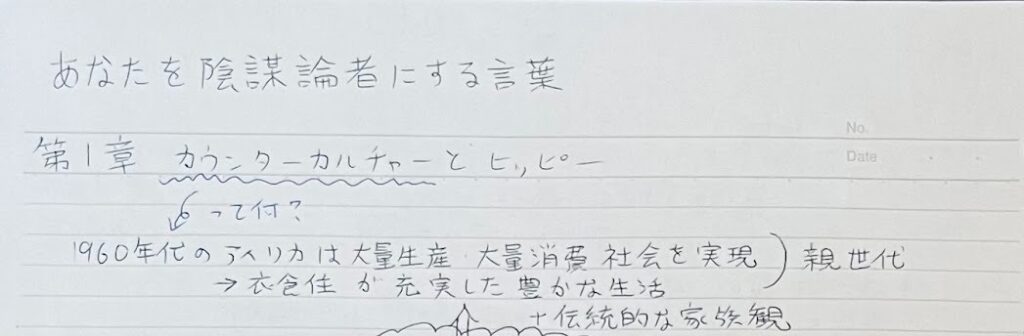 あなたを陰謀論者にする言葉
No.
Date
第1章 カウンターカルチャーとヒッピー
って何?
1960年代のアメリカは大量生産・大量消費社会を実現 ) 親世代
→衣食住が充実した豊かな生活
+伝統的な家族観